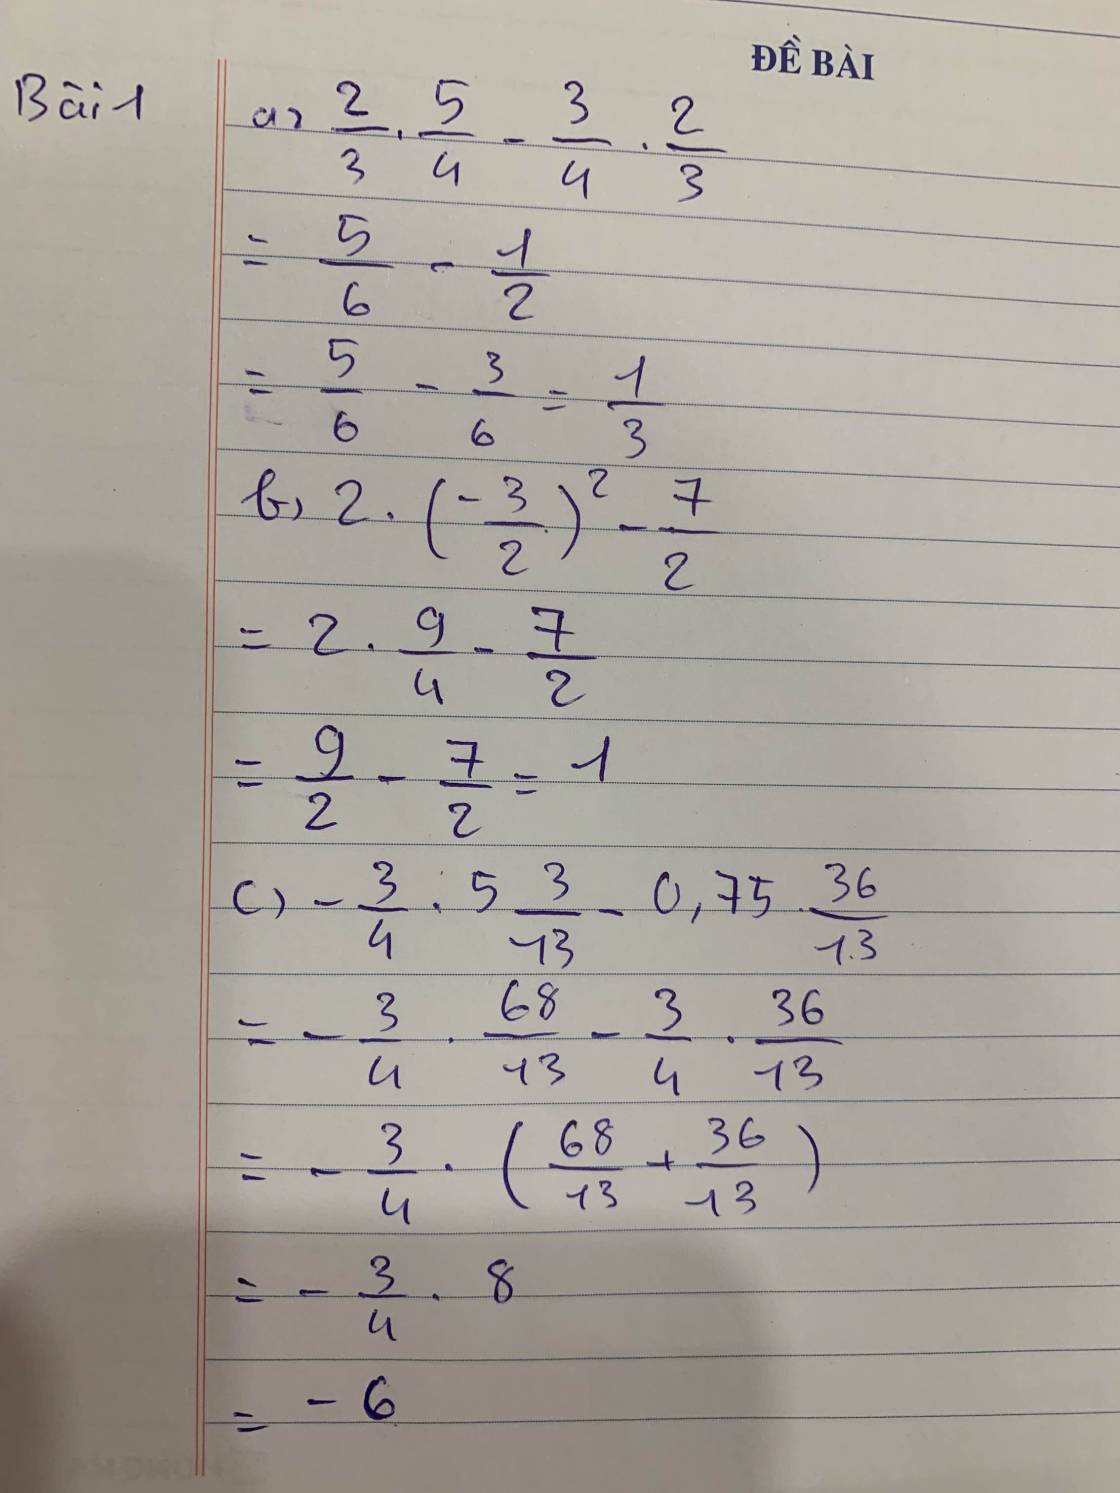 ĐỀ BÀI
Bài 1
a) 2/3 . 5/4 - 3/4 . 2/3
= 5/6 - 1/2
= 5/6 - 3/6 = 1/3
b) 2 . (-3/2)² - 7/2
= 2 . 9/4 - 7/2
= 9/2 - 7/2 = 1
c) - 3/4 . 5 3/13 - 0,75 . 36/13
= - 3/4 . 68/13 - 3/4 . 36/13
= - 3/4 . (68/13 + 36/13)
= - 3/4 . 8
= - 6